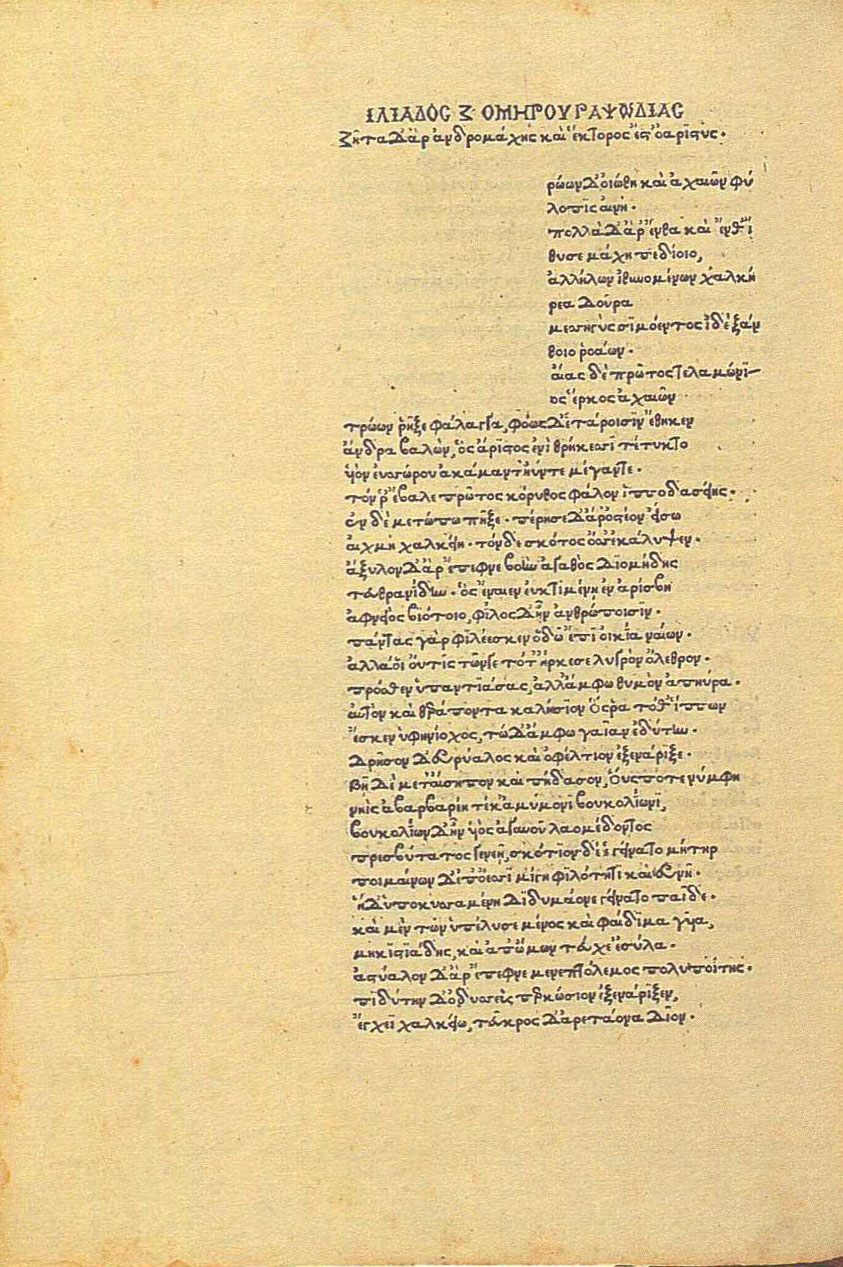 ΙΛΙΑΔΟΣ Ζ ΟΜΗΡΟΥ ΡΑΨΩΔΙΑΣ
Ζῆτα δ' ἂρ ἀνδρομάχης καὶ ἕκτορος ἔστ' ὀαριστύς.
ρώων δ' οιώθη καὶ ἀχαιῶν φύ
λοπις αἰνή.
πολλὰ δ' ἂρ ἔνθα καὶ ἔνθ' ἴ
θυσε μάχη πεδίοιο,
ἀλλήλων ἰθυνομένων χαλκή
ρεα δοῦρα
μεσηγὺς σιμόεντος ἰδὲ ξάν
θοιο ῥοάων.
αἴας δὲ πρῶτος τελαμώνι
ος ἕρκος ἀχαιῶν
τρώων ῥῆξε φάλαγγα, φόως δ' ἑτάροισιν ἔθηκεν
ἄνδρα βαλὼν, ὃς ἄριστος ἐνὶ θρήκεσσι τέτυκτο
υἱὸν ἐυσσώρου ἀκάμαντ' ἠύντε μέγαντε.
τόν ῥ' ἔβαλε πρῶτος κόρυθος φάλον ἱπποδασείης.
ἐν δὲ μετώπω πῆξε. πέρησε δ' ἄρ' ὀστέον εἴσω
αἰχμὴ χαλκείη. τὸν δε σκότος ὄσσ' ἐκάλυψεν.
ἄξυλον δ' ἂρ ἔπεφνε βοὴν ἀγαθὸς διομήδης
τευθρανίδην. ὃς ἔναιεν ἐυκτιμένη ἐν ἀρίσβη
ἀφνειὸς βιότοιο, φίλος δ' ἦν ἀνθρώποισιν.
πάντας γὰρ φιλέεσκεν ὁδῶ ἔπι οἰκία ναίων.
ἀλλά οἱ οὔτις τῶνγε τότ' ἤρκεσε λυγρὸν ὄλεθρον.
πρόσθεν ὑπαντιάσας, ἀλλ' ἄμφω θυμὸν ἀπηύρα.
αὐτὸν καὶ θεράποντα καλήσιον ὅς ῥα τόθ' ἵππων
ἔσκεν ὑφηνίοχος, τὼ δ' ἄμφω γαῖαν ἐδύτην.
δρῆσον δ' εὐρύαλος καὶ ὀφέλτιον ἐξενάριξε.
βῆ δὲ μετ' αἴσηπον καὶ πήδασον, οὕς ποτε νύμφη
νηὶς ἀβαρβαρέη τέκ' ἀμύμονι βουκολίωνι,
βουκολίων δ' ἦν υἱὸς ἀγαυοῦ λαομέδοντος
πρεσβύτατος γενεῆ, σκότιον δέ ἑ γείνατο μήτηρ
ποιμαίνων δ' ἐπ' ὄεσσι μίγη φιλότητι καὶ εὐνῆ.
ἡ δ' ὑποκυσσαμένη διδυμάονε γείνατο παῖδε.
καὶ μὲν τῶν ὑπέλυσε μένος καὶ φαίδιμα γυῖα,
μηκιστιάδης, καὶ ἀπ' ὤμων τεύχε' ἐσύλα.
ἀστύαλον δ' ἂρ ἔπεφνε μενεπτόλεμος πολυποίτης.
πιδύτην δ' ὀδυσσεὺς περκώσιον ἐξενάριξεν,
ἔγχεϊ χαλκείω, τεῦκρος δ' ἀρετάονα δῖον.